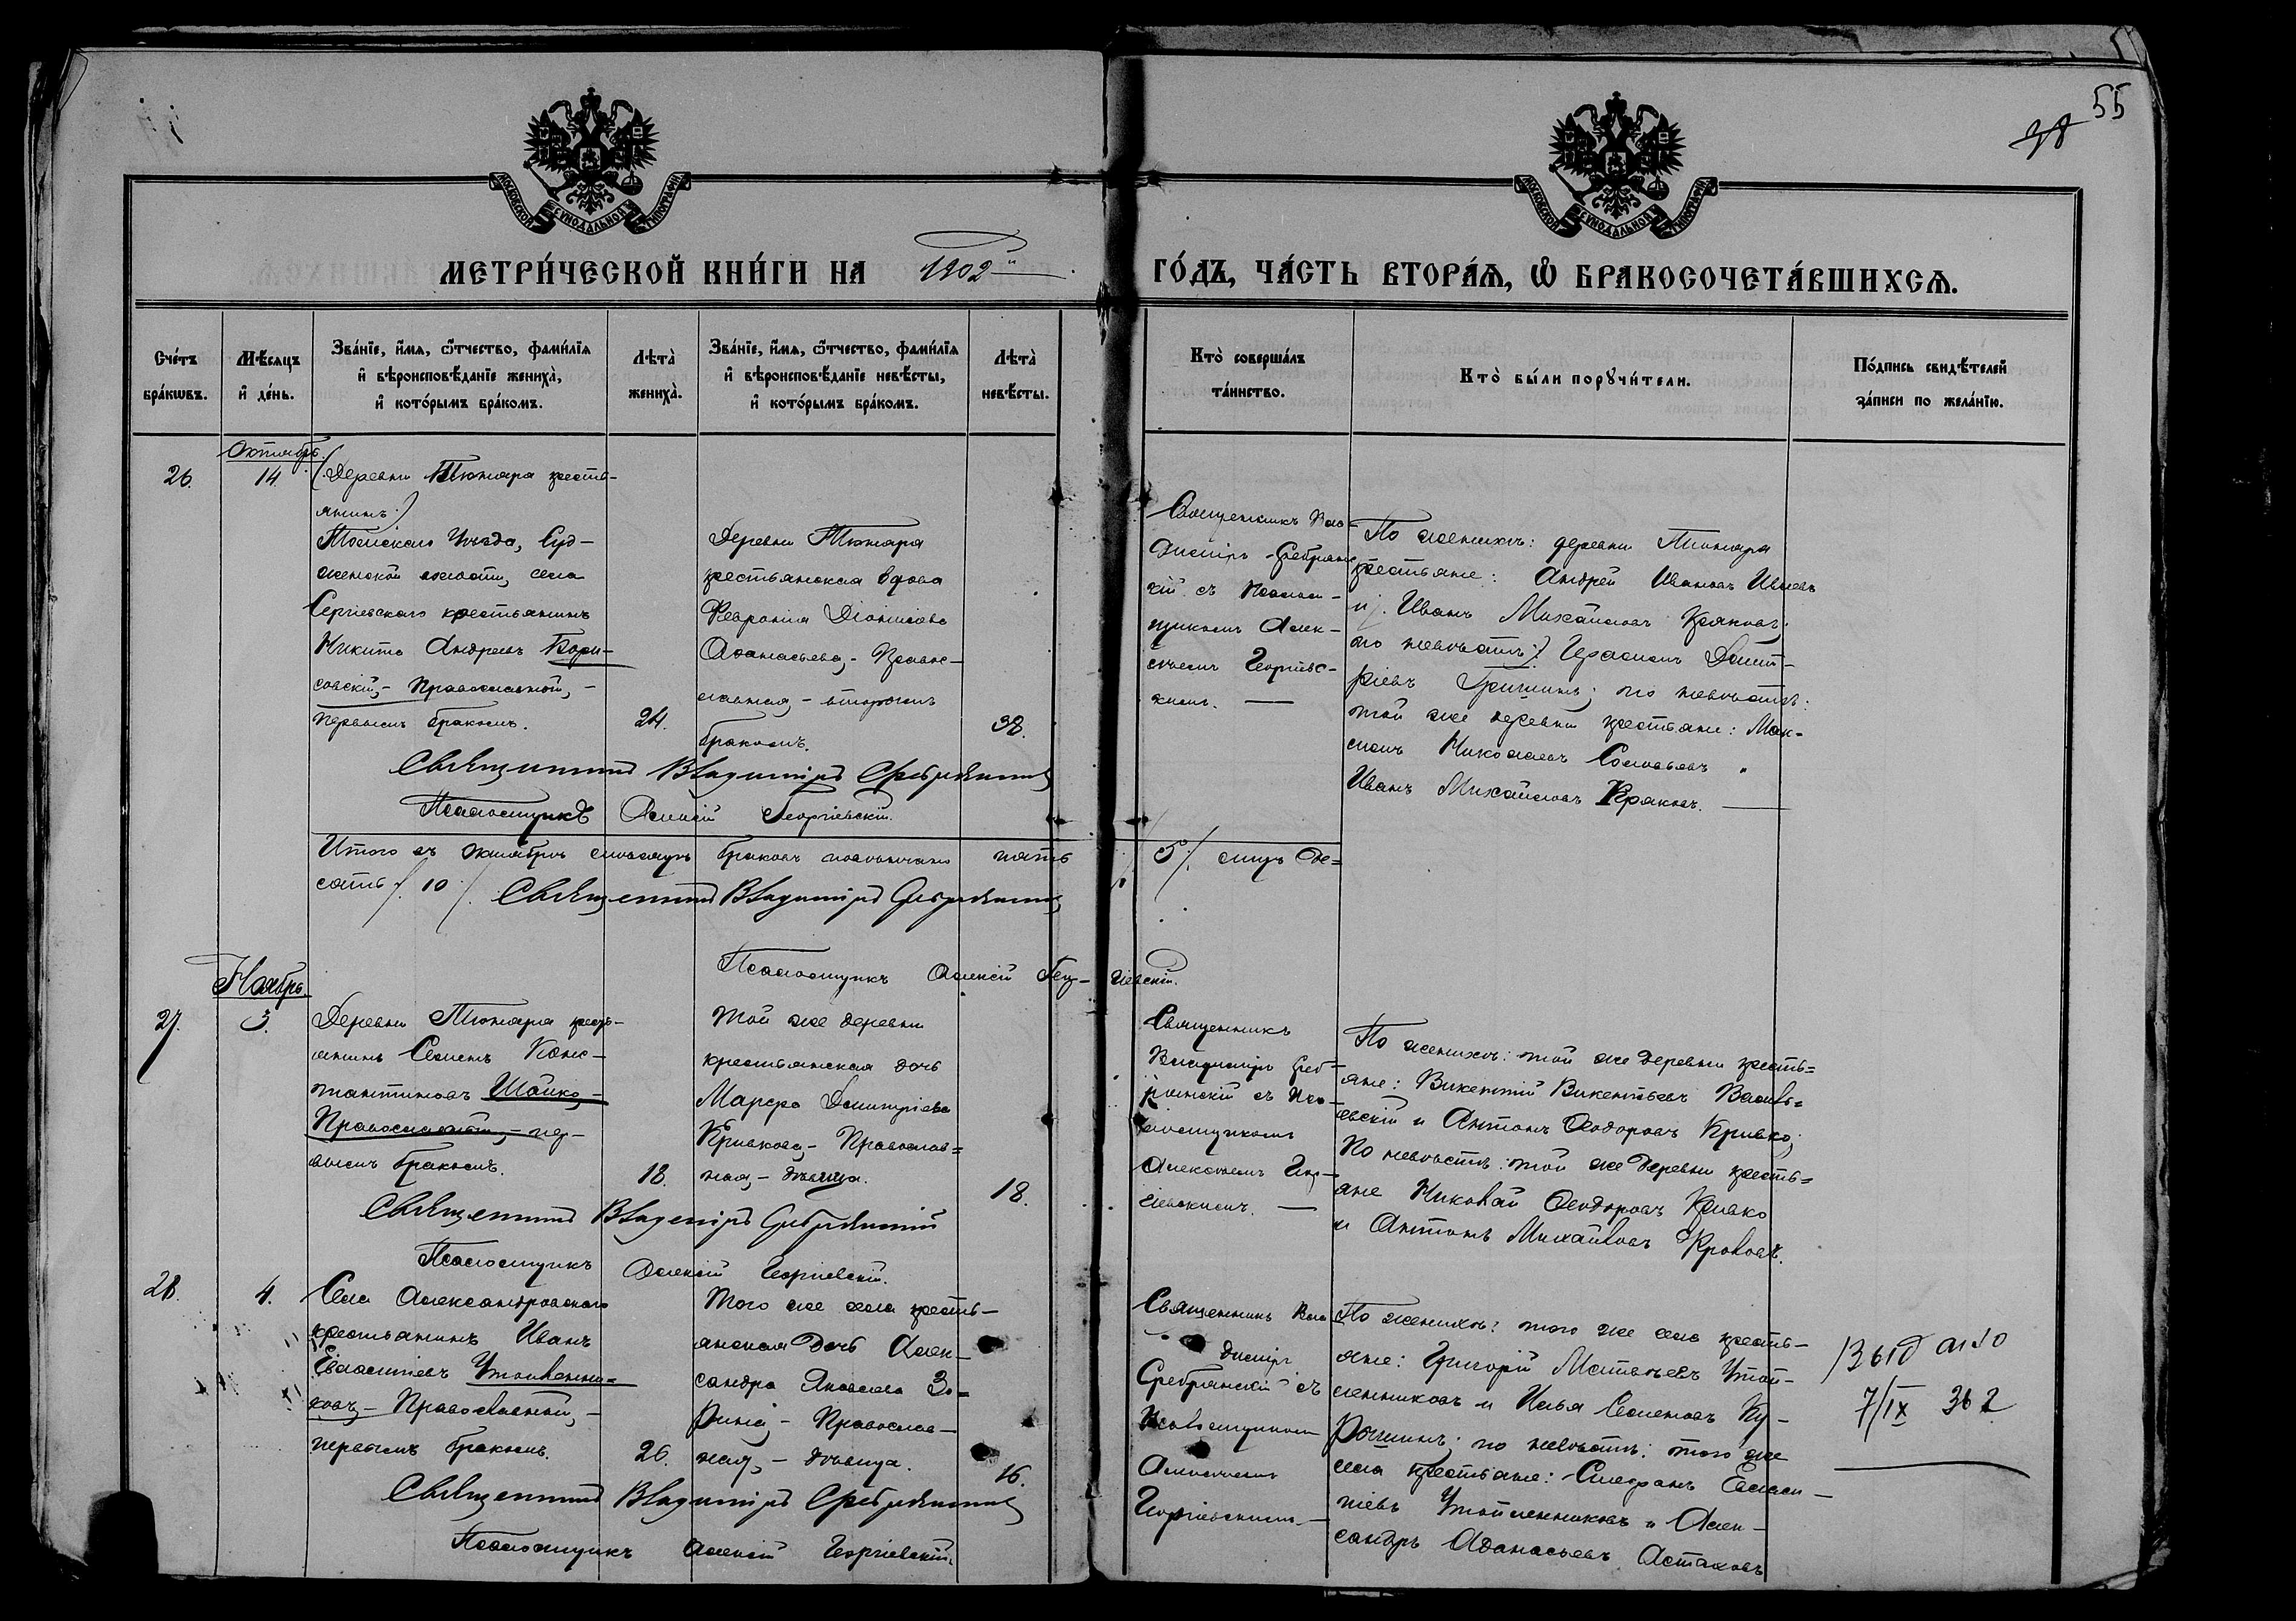 55
38
МОСКОВСКОЙ СѴНОДАЛЬНОЙ ТИПОГРАФІИ
МОСКОВСКОЙ СѴНОДАЛЬНОЙ ТИПОГРАФІИ
МЕТРИ́ЧЕСКОЙ КНИ́ГИ НА 1902й ГО́ДЪ, ЧА́СТЬ ВТОРА́Ѧ, Ѽ БРАКОСОЧЕТА́ВШИХСѦ.
Сче́тъ
бра́кѡвъ.
Мѣ́сяцъ
и҆ де́нь.
Зва́нїе, и҆́мѧ, ѻ҆́тчество, фами́лїѧ
и҆ вѣроисповѣ́данїе жениха̀,
и҆ кото́рымъ бра́комъ.
Лѣта̀
жениха̀.
Зва́нїе, и҆́мѧ, ѻ҆́тчество, фами́лїѧ
и҆ вѣроисповѣ́данїе невѣ́сты,
и҆ кото́рымъ бра́комъ.
Лѣта̀
невѣ́сты.
Кто̀ соверша́лъ
та́инство.
Кто̀ бы́ли порꙋчи́тели.
По́дпись свидѣ́телей
за́писи по жела́нїю.
Октябрь.
26.
14.
(Деревни Тюнгара кресть-
янинъ)
Томскаго Уѣзда, Суд-
женской волости, села
Сергіевскаго крестьянинъ
Никита Андреевъ Бори-
совскій, - Православной, -
первымъ бракомъ.
24.
Деревни Тюнгара
крестьянская вдова
Февронія Діонисіева
Аѳанасьева, - Правос-
лавная, - вторымъ
бракомъ.
38.
Священникъ Вла-
димиръ Сребрянс
кій съ Псалом-
щикомъ Алек-
сѣемъ Георгіевс-
кимъ. —
По женихѣ: деревни Тюнгара
крестьяне: Андрей Ивановъ
и Иванъ Михайловъ
по невѣстѣ) Герасимъ Дмит-
ріевъ Гришинъ; по невѣстѣ:
той же деревни крестьяне: Мак-
симъ Николаевъ Соловьевъ и
Иванъ Михайловъ
Священникъ Владиміръ Сребрянскій
Псаломщикъ Алексій Георгіевскій.
Итого въ Октябрѣ мѣсяцѣ браковъ повѣнчано
5 /.
сать /. 10 /. Священникъ Владиміръ Сребрянскій
Псаломщикъ Алексій Геор- гіевскій.
Ноябрь.
27.
3.
Деревни Тюнгара крест-
янинъ Семенъ Конс-
тантиновъ Шойко, -
Православный, - пер-
вымъ бракомъ.
18.
Той же деревни
крестьянская дочь
Марфа Димитріева
Кривкова, - Православ=
ная, - дѣвица.
18.
Священникъ
Владиміръ Среб-
рянскій съ Пса-
ломщикомъ
Алексѣемъ Геор-
гіевскимъ. —
По женихѣ: той же деревни кресть=
яне: Викентій Викентьевъ Василь=
евскій и Антонъ Ѳеодоровъ Кривко;
По невѣстѣ: той же деревни кресть=
яне Николай Ѳеодоровъ Кривко
и Антонъ Михайловъ
Священникъ Владиміръ Сребрянскій
Псаломщикъ Алексій Георгіевскій.
28.
4.
Села Александровскаго
крестьянинъ Иванъ
Евлампіевъ Утопленни=
ковъ, - Православный, -
первымъ бракомъ.
26.
Того же села кресть-
янская дочь Алек-
сандра Яковлева Зо=
рина, - Православ-
ная, - дѣвица.
16.
Священникъ Вла
диміръ
Сребрянскій съ
Псаломщикомъ
Алексѣемъ
Георгіевскимъ. —
По женихѣ: того же села кресть-
яне: Григорій Матвѣевъ Утоп-
ленниковъ и Илья Семеновъ
по невѣстѣ: того же
села крестьяне: Стефанъ Евлам-
піевъ Утопленниковъ и Алек-
сандръ Аѳанасьевъ Астаховъ
7/IX 362
Священникъ Владиміръ Сребрянскій
Псаломщикъ Алексій Георгіевскій.